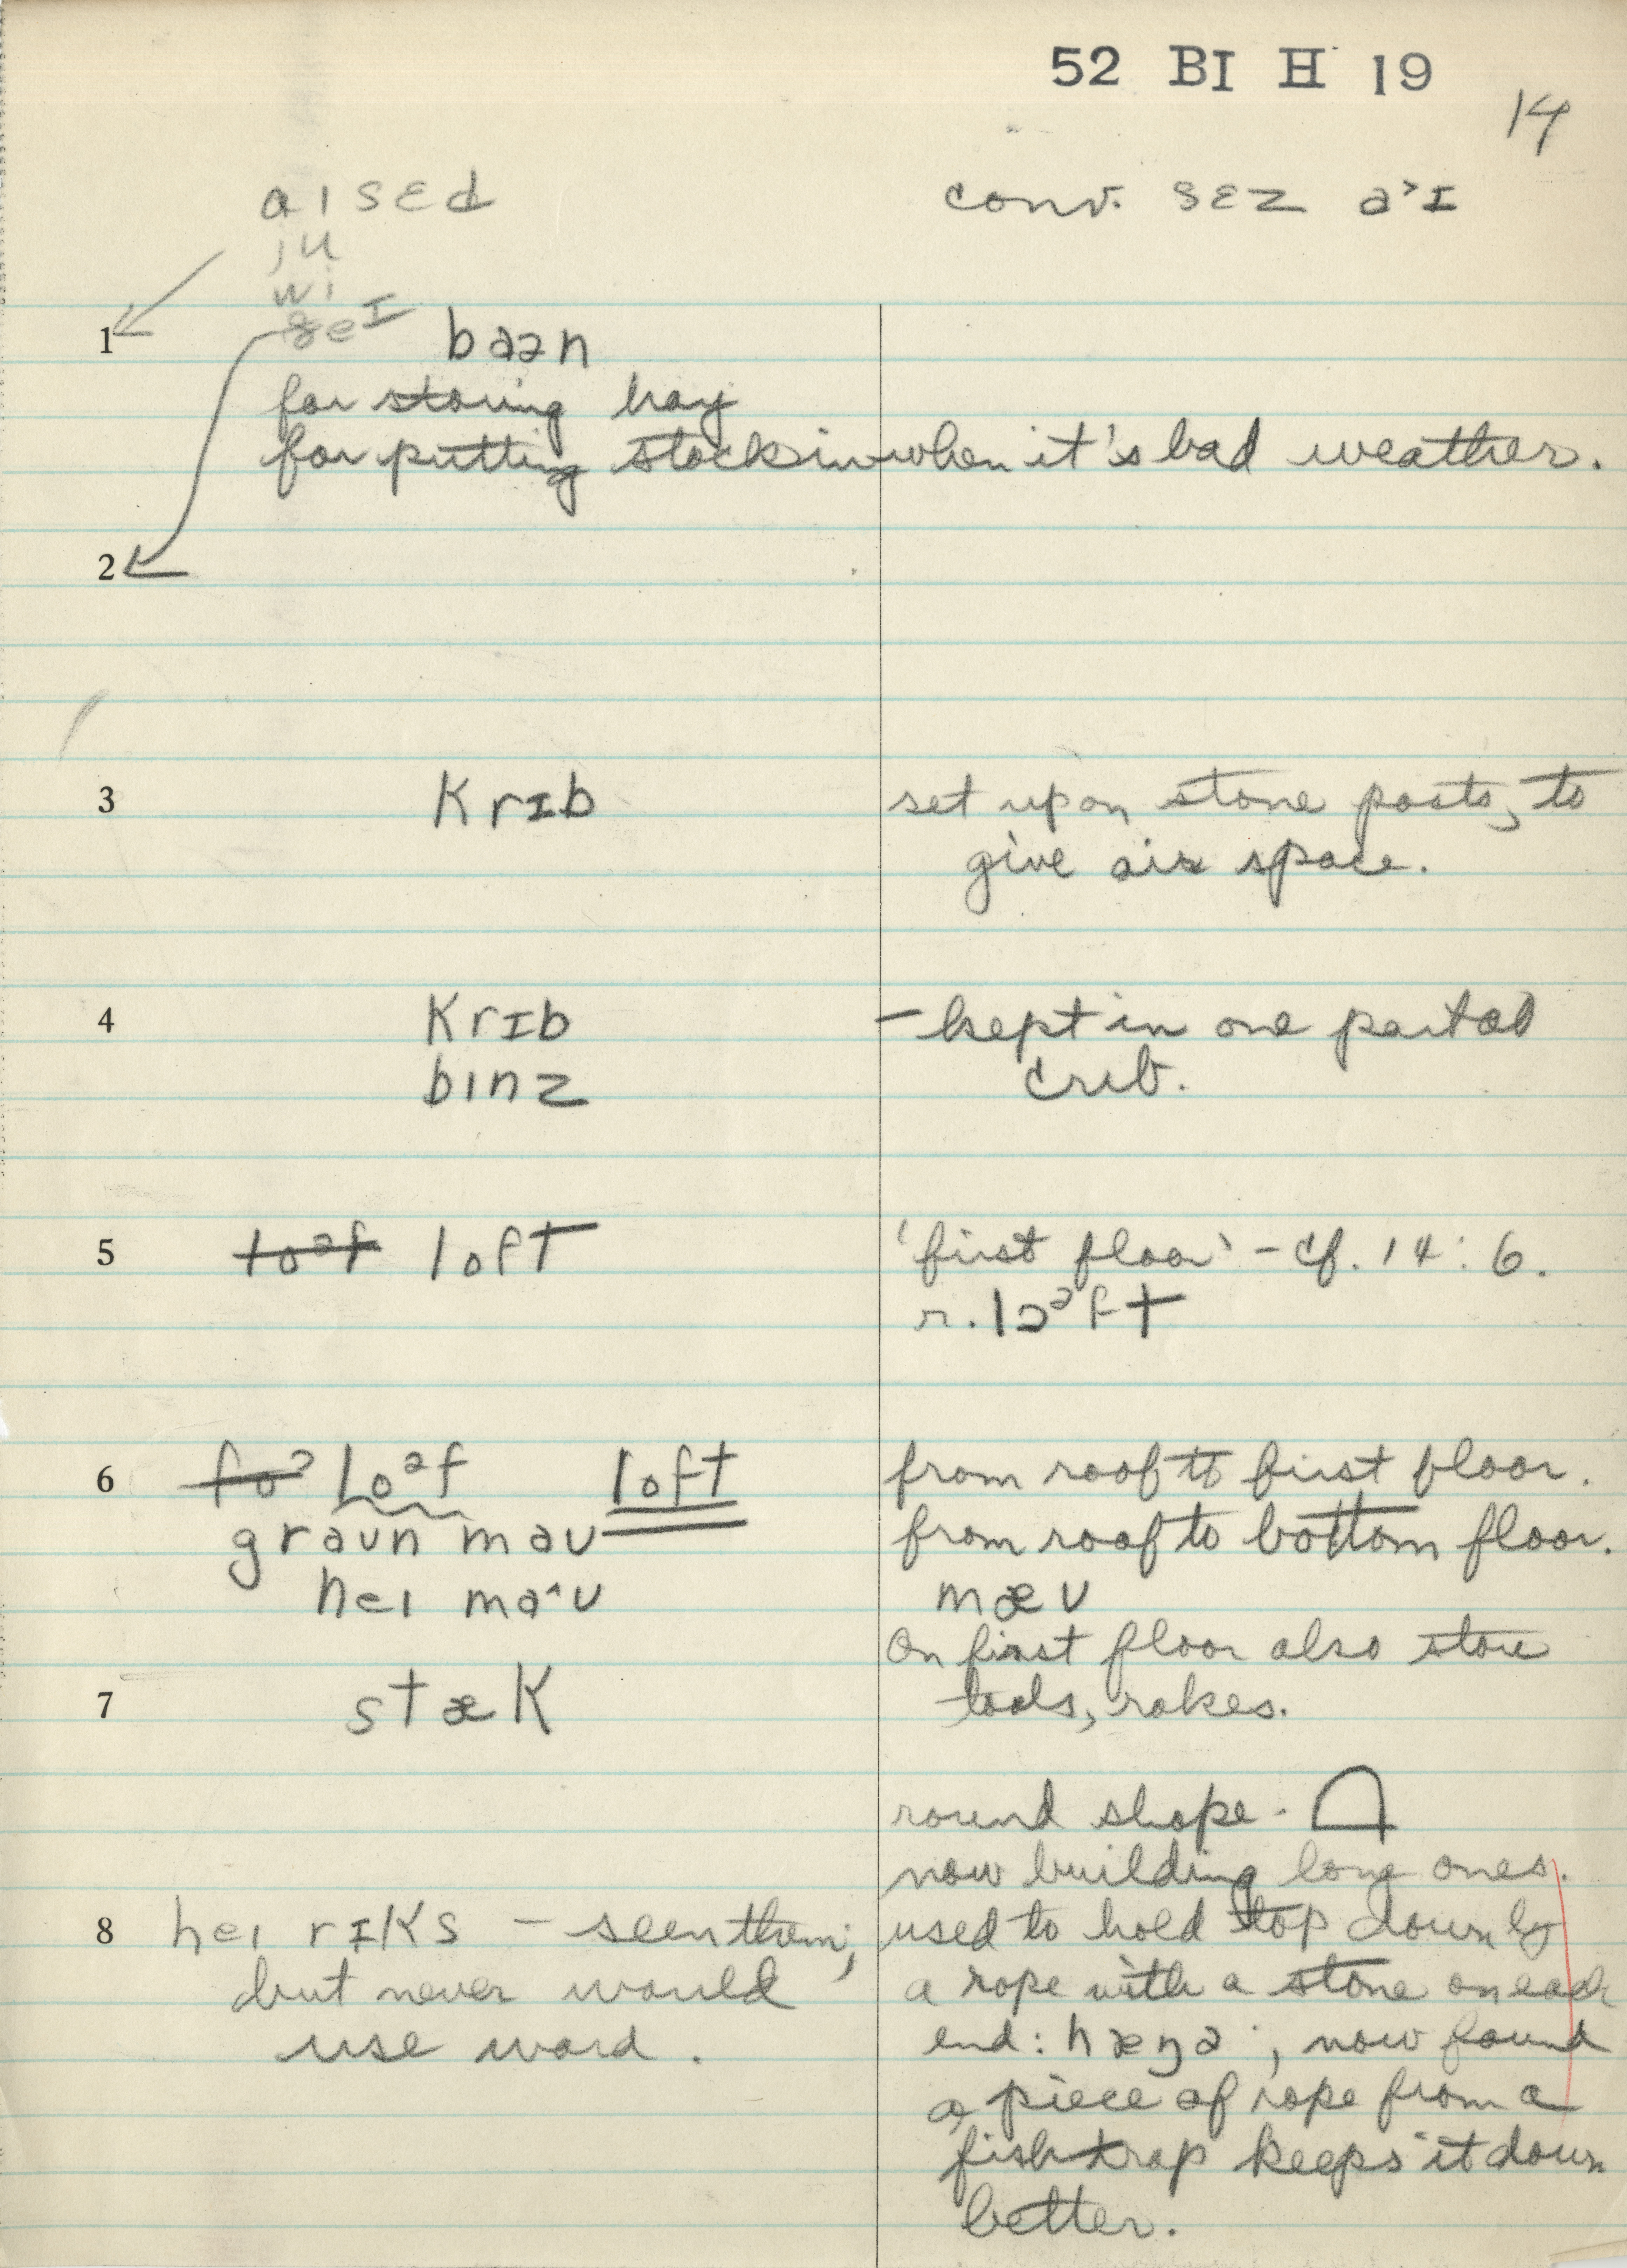 52 BI H 19
14
aɪ sɛd conv. sɛz a˃ɪ
ju
wi
ðeɪ
1 baən
for storing hay
for putting stock in when it's bad weather.
2
3 krɪb set up on stone posts, to
give air space.
4 krɪb – kept in one partial
bɪnz crib.
5 lo²f loft 'first floor' – cf. 14:6.
r. lɔᵊft
6 fo² loᵊf loft from roof to first floor.
graun mau from roof to bottom floor.
heɪ ma^u mæu
On first floor also store
7 stæk tools, rakes.
round shape.
now building long ones.
8 heɪ rɪks – seen them, used to hold top down by
but never would a rope with a stone on each
use word. end: hæŋə; now found
a piece of rope from a
fish trap keeps it down
better.